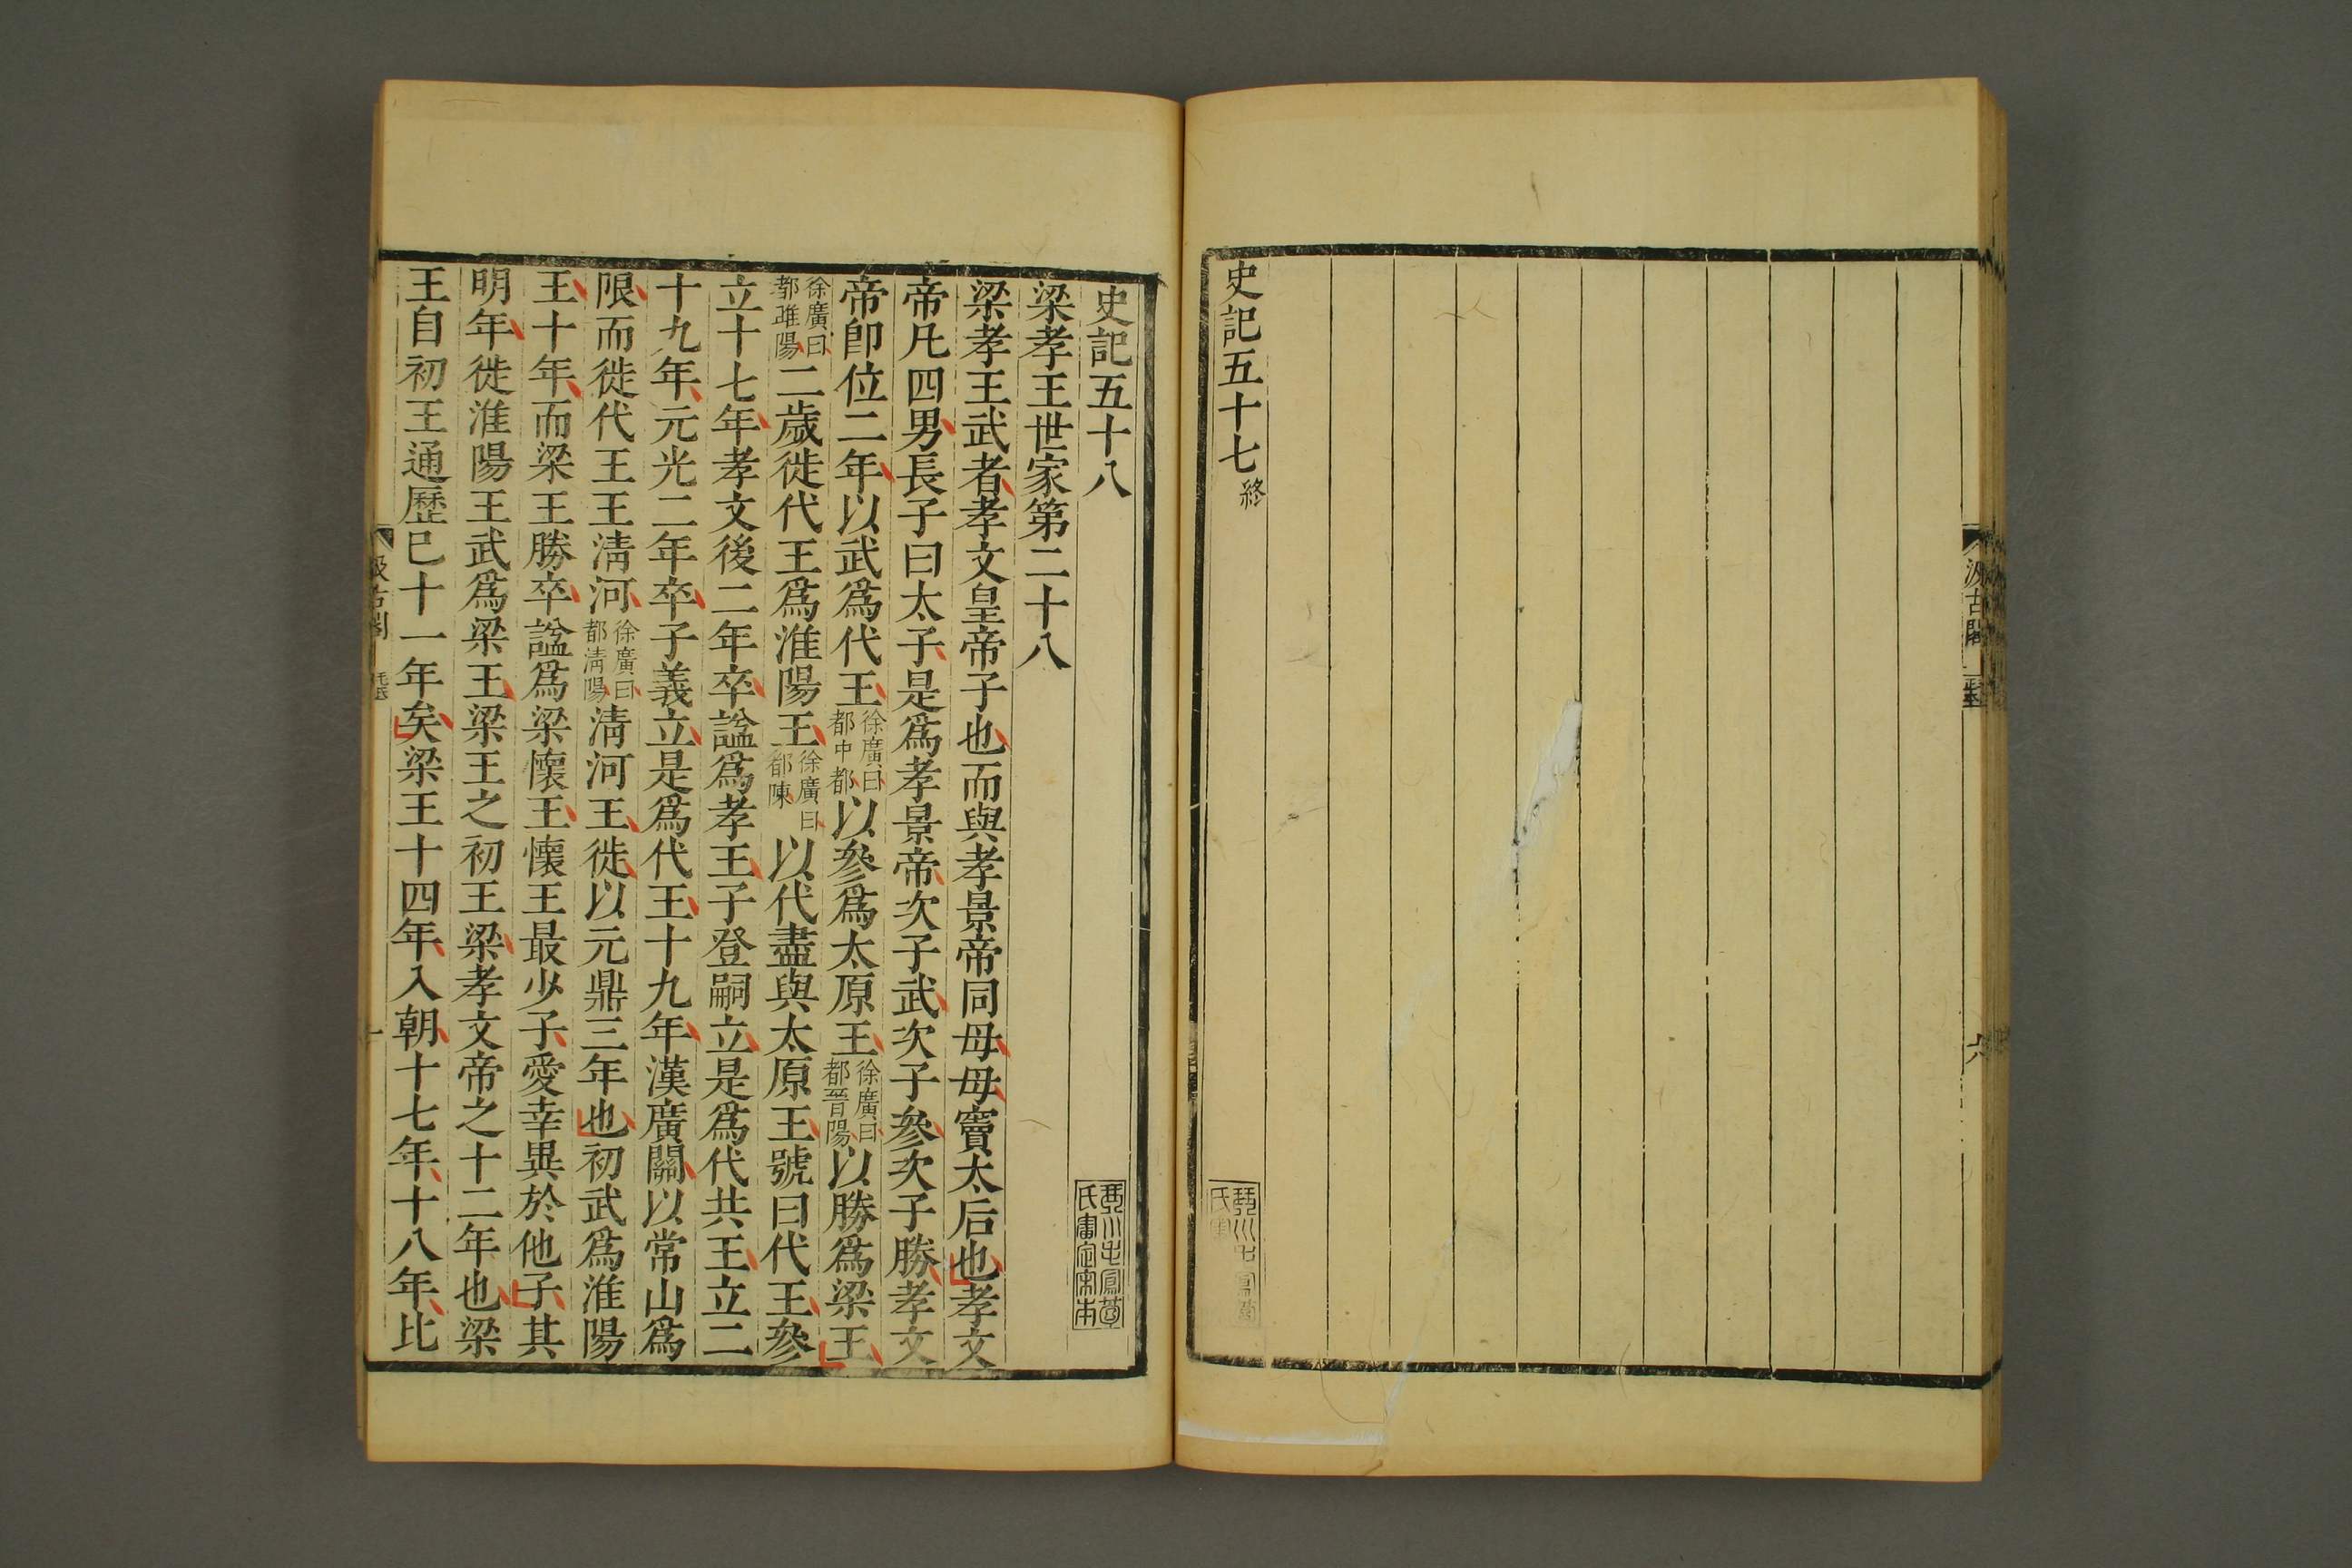 汲古閣
六
史記五十七終
琴川毛鳳苞
氏
史記五十八
琴川毛鳳苞
氏審定宋本
梁孝王世家第二十八
梁孝王武者孝文皇帝子也而與孝景帝同母母竇太后也孝文
帝凡四男長子曰太子是爲孝景帝次子武次子參次子勝孝文
帝卽位二年以武爲代王徐廣曰都中都以參爲太原王徐廣曰都晉陽以勝爲梁王
徐廣曰都睢陽二歲徙代王爲淮陽王徐廣曰都陳以代盡與太原王號曰代王參
立十七年孝文後二年卒諡爲孝王子登嗣立是爲代共王立二
十九年元光二年卒子義立是爲代王十九年漢廣關以常山爲
限而徙代王王淸河徐廣曰都淸陽淸河王徙以元鼎三年也初武爲淮陽
王十年而梁王勝卒諡爲梁懷王懷王最少子愛幸異於他子其
明年徙淮陽王武爲梁王梁王之初王梁孝文帝之十二年也梁
王自初王通歷已十一年矣梁王十四年入朝十七年十八年比
汲古閣
一